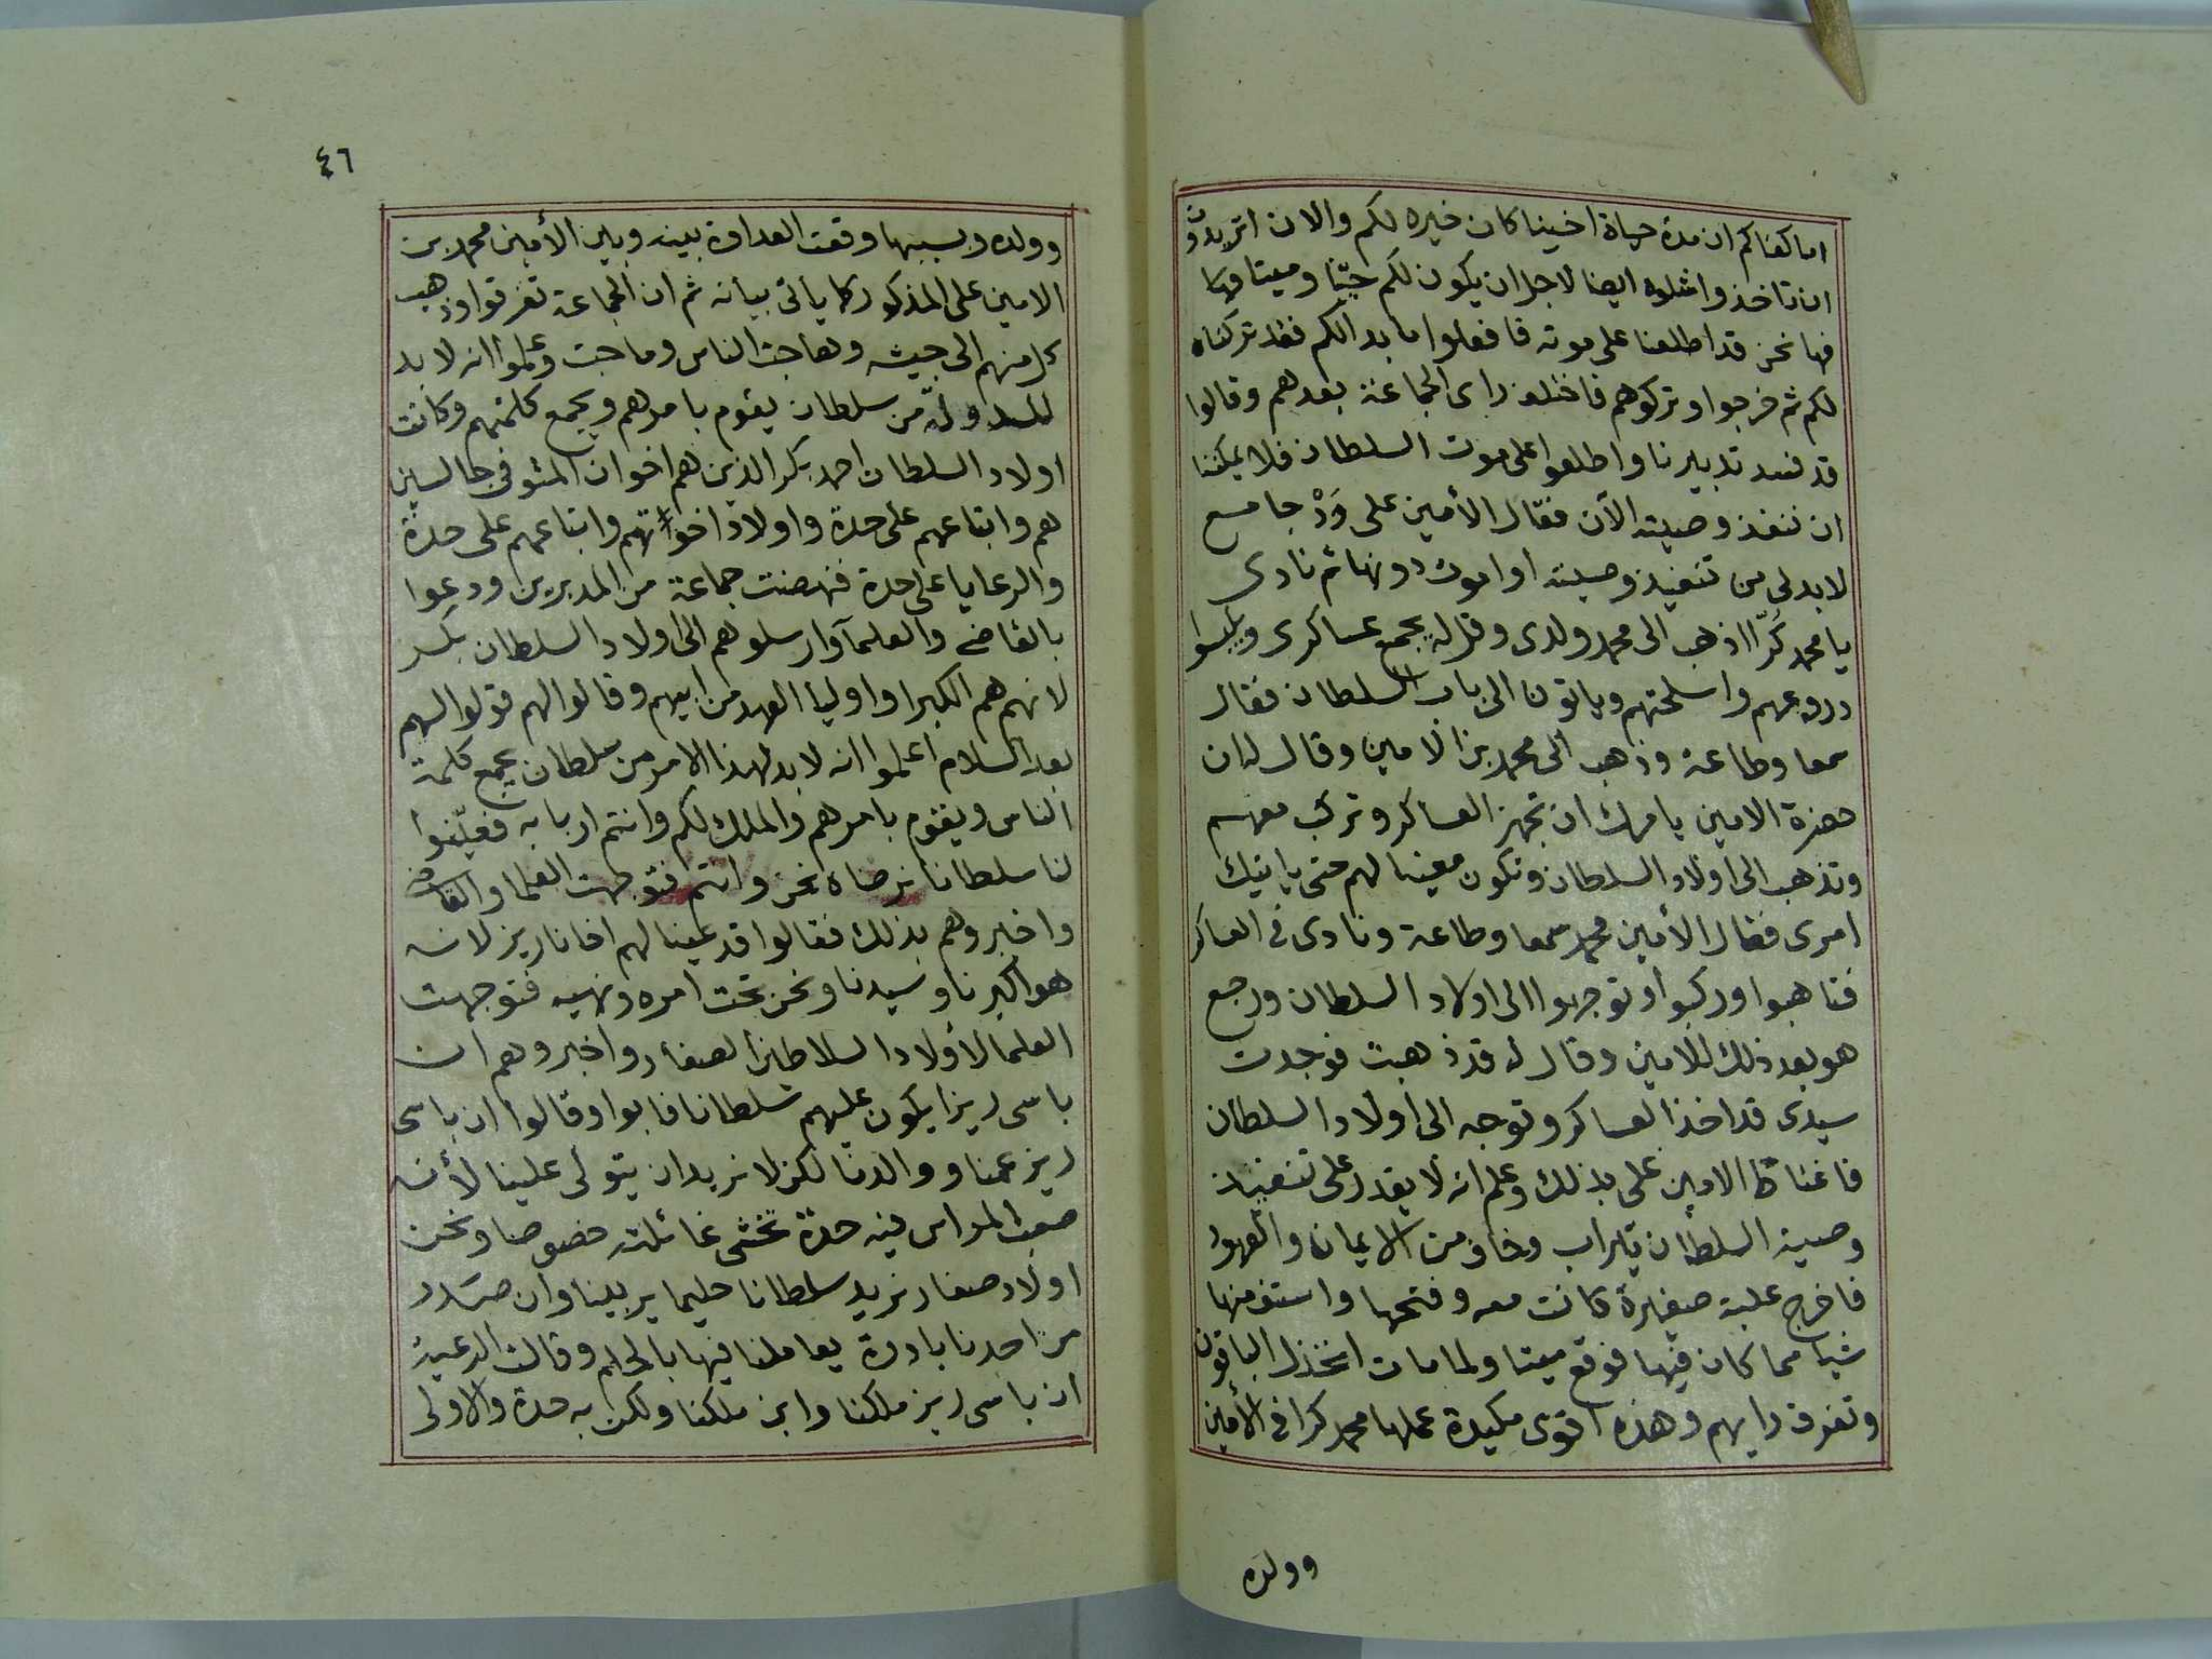 اما كفاكم ان مدة حياة اخينا كان خيره لكم والان اتريدون
ان تاخذوا شلوه ايضا لاجل ان يكون لكم حيّا وميتا وها
فها نحن قد اطلعنا على موته فافعلوا ما بدا لكم فقد تركناه
لكم ثم خرجوا وتركوهم فاختلف راى الجماعة بعدهم وقالوا
قد فسد تدبيرنا واطلعوا على موت السلطان فلا يمكننا
ان ننفذ وصيته الآن فقال الأمين على وَدْ جامع
لا بد لى من تنفيذ وصيته او اموت دونها ثم نادى
يا محمد كُرّا اذهب الى محمد ولدى وقل له يجمع عساكرى ويلبسوا
دروعهم واسلحتهم وياتون الى باب السلطان فقال
سمعا وطاعة وذهب الى محمد بن الامين وقال له ان
حضرة الامين يامرك ان تجهز العساكر وتركب معهم
وتذهب الى اولاد السلطان وتكون معينا لهم حتى ياتيك
امرى فقال الأمين محمد سمعا وطاعة ونادى فى العساكر
فتاهبوا وركبوا وتوجهوا الى اولاد السلطان ورجع
هو بعد ذلك للامين وقال له قد ذهبت فوجدت
سيدى قد اخذ العساكر وتوجه الى اولاد السلطان
فاغتاظ الامين على بذلك وعلم انه لا يقدر على تنفيذ
وصية السلطان تيراب وخاف من الايمان والعهود
فاخرج علبة صغيرة كانت معه وفتحها واستف منها
شيا مما كان فيها فوقع ميتا ولما مات انخذل الباقون
وتفرق رايهم وهذه اقوى مكيدة عملها محمد كرا فى الأمين
وولده
٤٦
وولده وبسببها وقعت العداوة بينه وبين الأمين محمد بن
الامين على المذكور كما يأتى بيانه ثم ان الجماعة تفرقوا وذهب
كل منهم الى جيشه وهاجت الناس وماجت وعلموا انه لا بد
للدولة من سلطان يقوم بامرهم ويجمع كلمتهم وكانت
اولاد السلطان احمد بكر الذين هم اخوان المتوفى جالسين
هم واتباعهم على حدة واولاد اخواتهم واتباعهم على حدة
والرعايا على حدة فنهضت جماعة من المدبرين ودعوا
بالقاضى والعلما وارسلوهم الى اولاد السلطان بكر
لانهم هم الكبرا واوليا العهد من ابيهم وقالوا لهم قولوا لهم
بعد السلام اعلموا انه لا بد لهذا الامر من سلطان يجمع كلمة
الناس ويقوم بامرهم والملك لكم وانتم اربابه فعيّنوا
لنا سلطانا نرضاه نحن وانتم فتوجهت العلما والقاضى
واخبروهم بذلك فقالوا قد عينا لهم اخانا ريز لانه
هو اكبرنا وسيدنا ونحن تحت امره ونهيه فتوجهت
العلما لأولاد السلاطين الصغار واخبروهم ان
باسى ريزا يكون عليهم سلطانا فابوا وقالوا ان باسى
ريز عمنا ووالدنا لكن لا نريد ان يتولى علينا لأنه
صعب المراس فيه حدة تخشى غائلته خصوصا ونحن
اولاد صغار نريد سلطانا حليما يربينا وان صدر
من احدنا بادرة يعاملنا فيها بالحلم وقالت الرعية
ان باسى ريز ملكنا وابن ملكنا ولكن به حدة والاولى